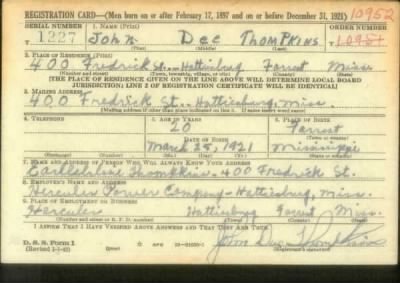 REGISTRATION CARD—(Men born on or after February 17, 1897 and on or before December 31, 1921) 10952
SERIAL NUMBER 1. NAME (Print) ORDER NUMBER
1227 John Dee Thompkins 10951
(First) (Middle) (Last)
2. PLACE OF RESIDENCE (Print)
400 Fredrick St.. Hattiesburg Forrest Miss
(Number and street) (Town, township, village, or city) (County) (State)
[THE PLACE OF RESIDENCE GIVEN ON THE LINE ABOVE WILL DETERMINE LOCAL BOARD
JURISDICTION; LINE 2 OF REGISTRATION CERTIFICATE WILL BE IDENTICAL]
3. MAILING ADDRESS
400 Fredrick St.. Hattiesburg, Miss.
4. TELEPHONE 5. AGE IN YEARS 6. PLACE OF BIRTH
20 Forrest
DATE OF BIRTH (Town or county)
March 25, 1921 Mississippi
(Exchange) (Number) (Mo.) (Day) (Yr.) (State or country)
7. NAME AND ADDRESS OF PERSON WHO WILL ALWAYS KNOW YOUR ADDRESS
Thompkins. 400 Fredrick St.
8. EMPLOYER'S NAME AND ADDRESS
Hercules Powder Company - Hattiesburg, Miss.
9. PLACE OF EMPLOYMENT OR BUSINESS
Hercules Hattiesburg Forrest Miss.
(Number and street or R. F. D. number) (Town) (County) (State)
I AFFIRM THAT I HAVE VERIFIED ABOVE ANSWERS AND THAT THEY ARE TRUE.
D. S. S. Form 1
John Dee Thompkins
(Registrant's signature)